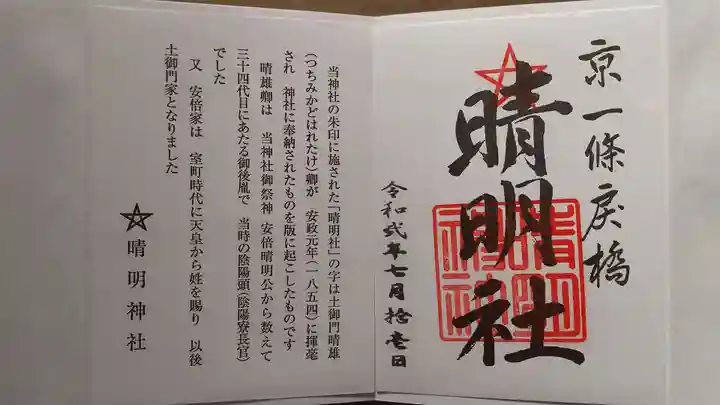 京一條戻橋
晴明社
晴明神社
令和弐年七月拾壱日
当神社の朱印に施された「晴明社」の字は土御門晴雄
(つちみかどはれたけ)卿が 安政元年(一八五四)に揮毫
され 神社に奉納されたものを版に起こしたものです
晴雄卿は 当神社御祭神 安倍晴明公から数えて
三十四代目にあたる御後胤で 当時の陰陽頭(陰陽寮長官)
でした
又 安倍家は 室町時代に天皇から姓を賜り 以後
土御門家となりました
晴明神社